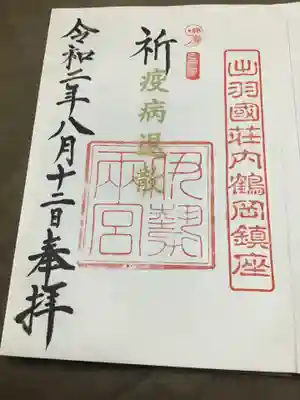 出羽國荘内鶴岡鎮座
祈疫病退散
伊勢両宮
令和二年八月十二日奉拝